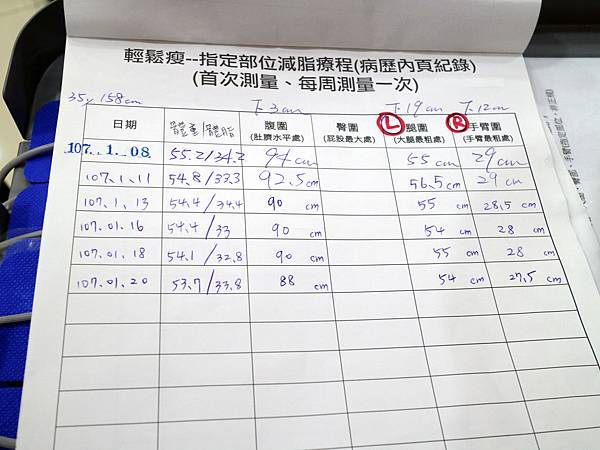 輕鬆瘦--指定部位減脂療程(病歷內頁紀錄)
(首次測量、每周測量一次)
35y 158cm 下3cm 下19cm 下12cm
日期 體重/體脂 腹圍 臀圍 L 腿圍 R 手臂圍
(肚臍水平處) (屁股最大處) (大腿最粗處) (手臂最粗處)
107.1.08 55.2/34.2 94cm 55cm 29cm
107.1.11 54.8/33.3 92.5cm 56.5cm 29cm
107.1.13 54.4/34.4 90 cm 55 cm 28.5 cm
107.01.16 54.4/33 90 cm 54 cm 28 cm
107.01.18 54.1/32.8 90 cm 55 cm 28 cm
107.01.20 53.7/33.8 88 cm 54 cm 27.5 cm